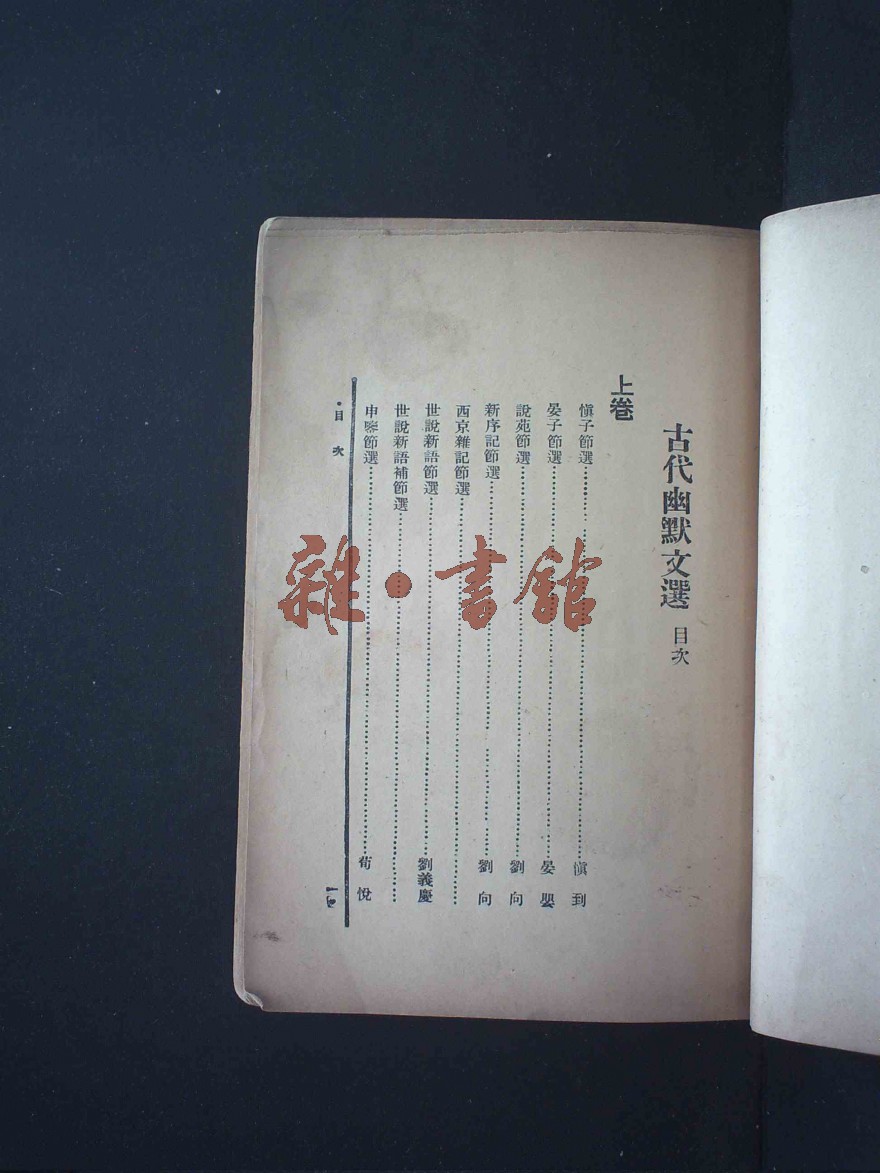 古代幽默文選 目次
上卷
愼子節選……愼到
晏子節選……晏嬰
說苑節選……劉向
新序記節選……劉向
西京雜記節選……
世說新語節選……劉義慶
世說新語補節選……
申鑒節選……荀悅
·目次
一
雜·書館